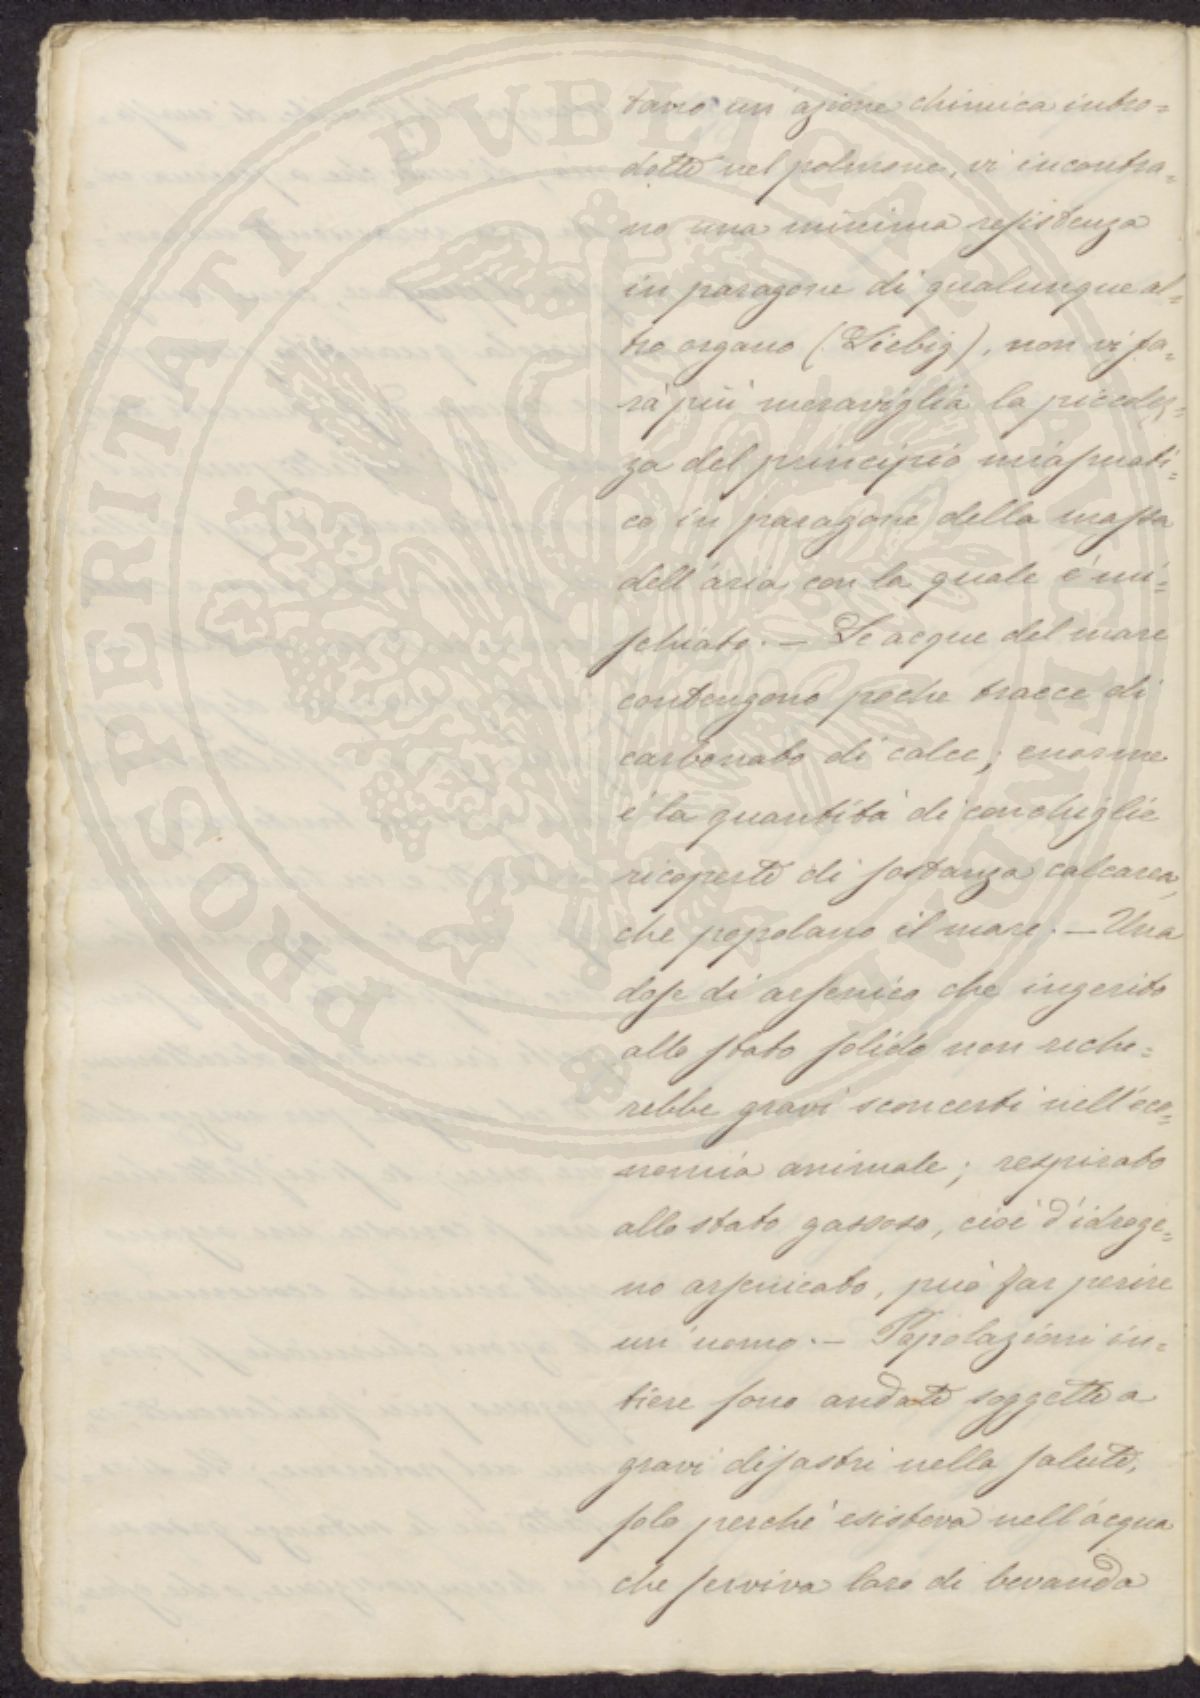 tare un'azione chimica intro=
dotte nel polmone, vi incontra=
no una minima resistenza
in paragone di qualunque al=
tro organo (Liebig), non vi fa=
rà più meraviglia la piccolez=
za del principio miasmati=
co in paragone della massa
dell'aria con la quale è mi=
schiato. — Le acque del mare
contengono poche tracce di
carbonato di calce; enorme
è la quantità di conchiglie
ricoperte di sostanza calcarea,
che popolano il mare. — Una
dose di arsenico che ingerito
allo stato solido non reche=
rebbe gravi sconcerti nell'eco=
nomia animale; respirato
allo stato gassoso, cioè d'idroge=
no arsenicato, può far perire
un uomo. — Popolazioni in=
tiere sono andate soggette a
gravi disastri nella salute,
solo perché esisteva nell'acqua
che serviva loro di bevanda
PROSPERITATI PUBLICAE